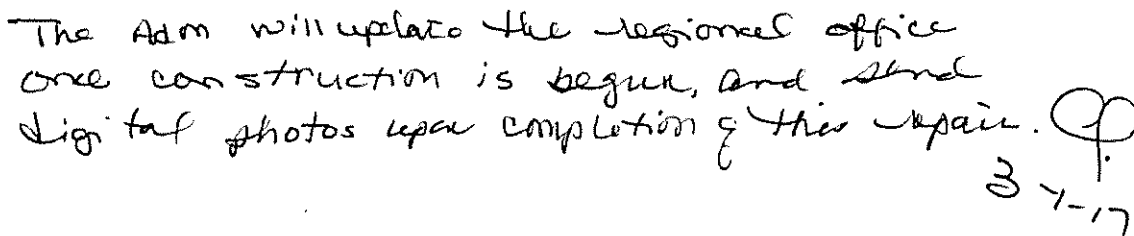 The Adm will update the regional office
once construction is begun, and send
digital photos upon completion of this repair.